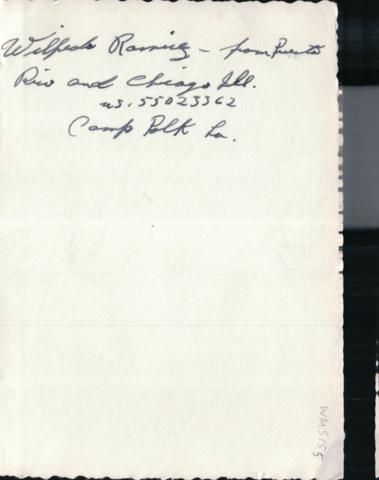 Wilfredo Ramirez – from Puerto
Rico and Chicago Ill.
US. 55023362
Camp Polk La.